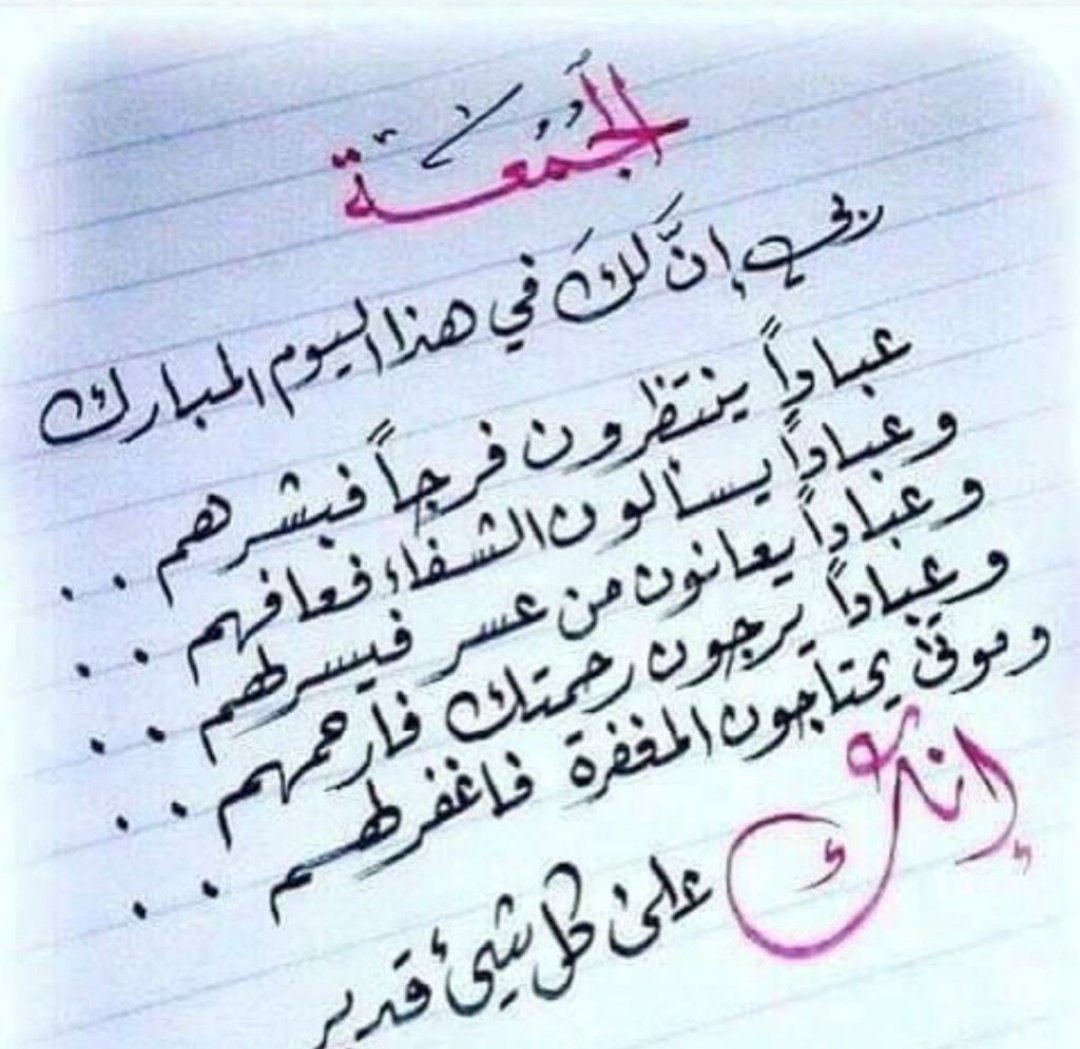 الجُمُعة
ربي إنَّ لكَ في هذا اليوم المبارك
عباداً ينتظرون فرجاً فبشرهم . .
وعباداً يسألون الشفاء فعافهم . .
وعباداً يعانون من عسر فيسر لهم . .
وعباداً يرجون رحمتك فارحمهم . .
وموتى يحتاجون المغفرة فاغفر لهم . .
إنك على كل شيئ قدير